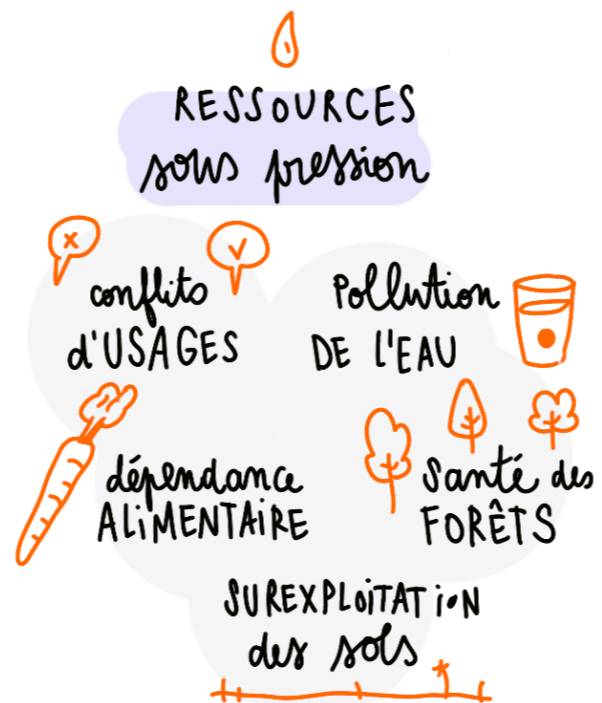 RESSOURCES
sous pression
conflits
d'USAGES
Pollution
DE L'EAU
dépendance
ALiMENTAiRE
Santé des
FORÊTS
SUREXPLOiTATiON
des sols